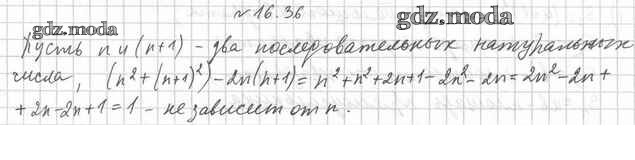 № 16.36
gdz.moda gdz.moda
Пусть n и (n+1) - два последовательных натуральных
числа, (n²+(n+1)²)-2n(n+1)=n²+n²+2n+1-2n²-2n=2n²-2n+
+2n-2n+1=1 - не зависит от n.